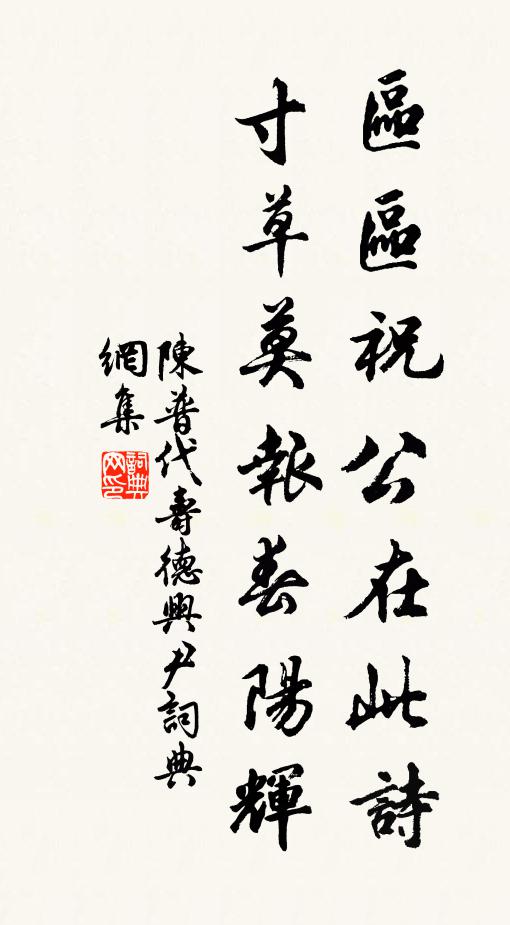 區區祝公在此詩
寸草莫報春陽輝
陳普代壽德興尹詞典
網集
詞典网印